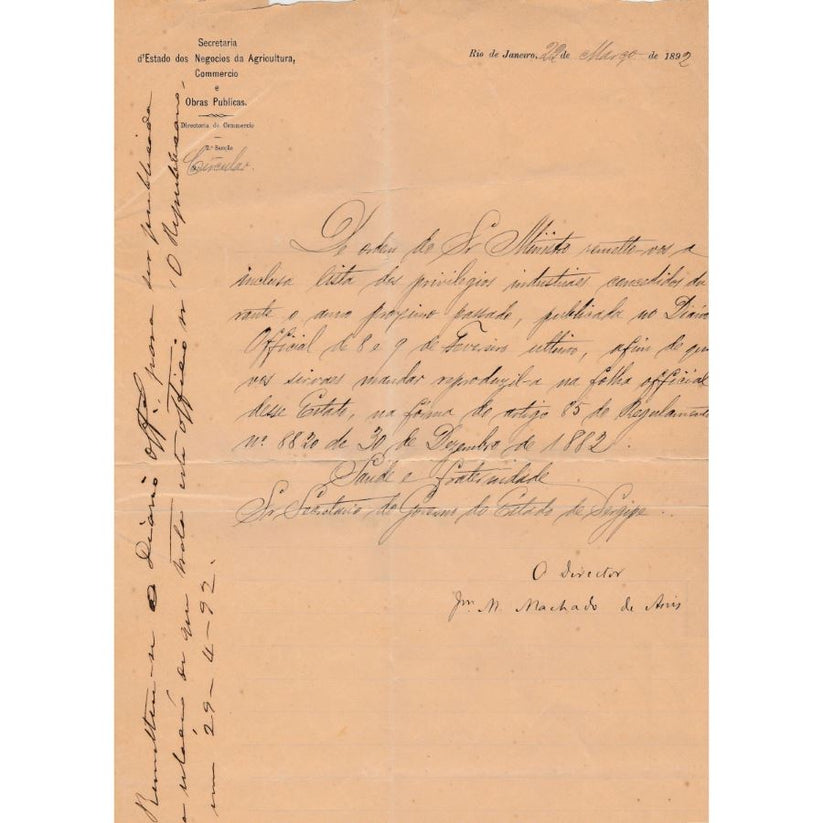 Secretaria
d'Estado dos Negocios da Agricultura,
Commercio
e
Obras Publicas.
Directoria do Commercio
2.ª Secção
Circular
Rio de Janeiro, 22 de Março de 1892
De ordem do Sr. Ministro remetto-vos a
inclusa lista dos privilegios industriaes concedidos du
rante o anno proximo passado, publicada no Diario
Official de 8 e 9 de Fevereiro ultimo, afim de que
vos sirvaes mandar reproduzil-a na folha official
desse Estado, na fórma do artigo 85 do Regulamento
nº 8820 de 30 de Dezembro de 1882.
Saude e fraternidade
Sr. Secretario do Governo do Estado de Sergipe.
O Director
Jm. M. Machado de Assis
Remetteu-se o Diario Offal. para ser publicada
a relação de que trata este officio n' "O Republicano"
em 29-4-92.